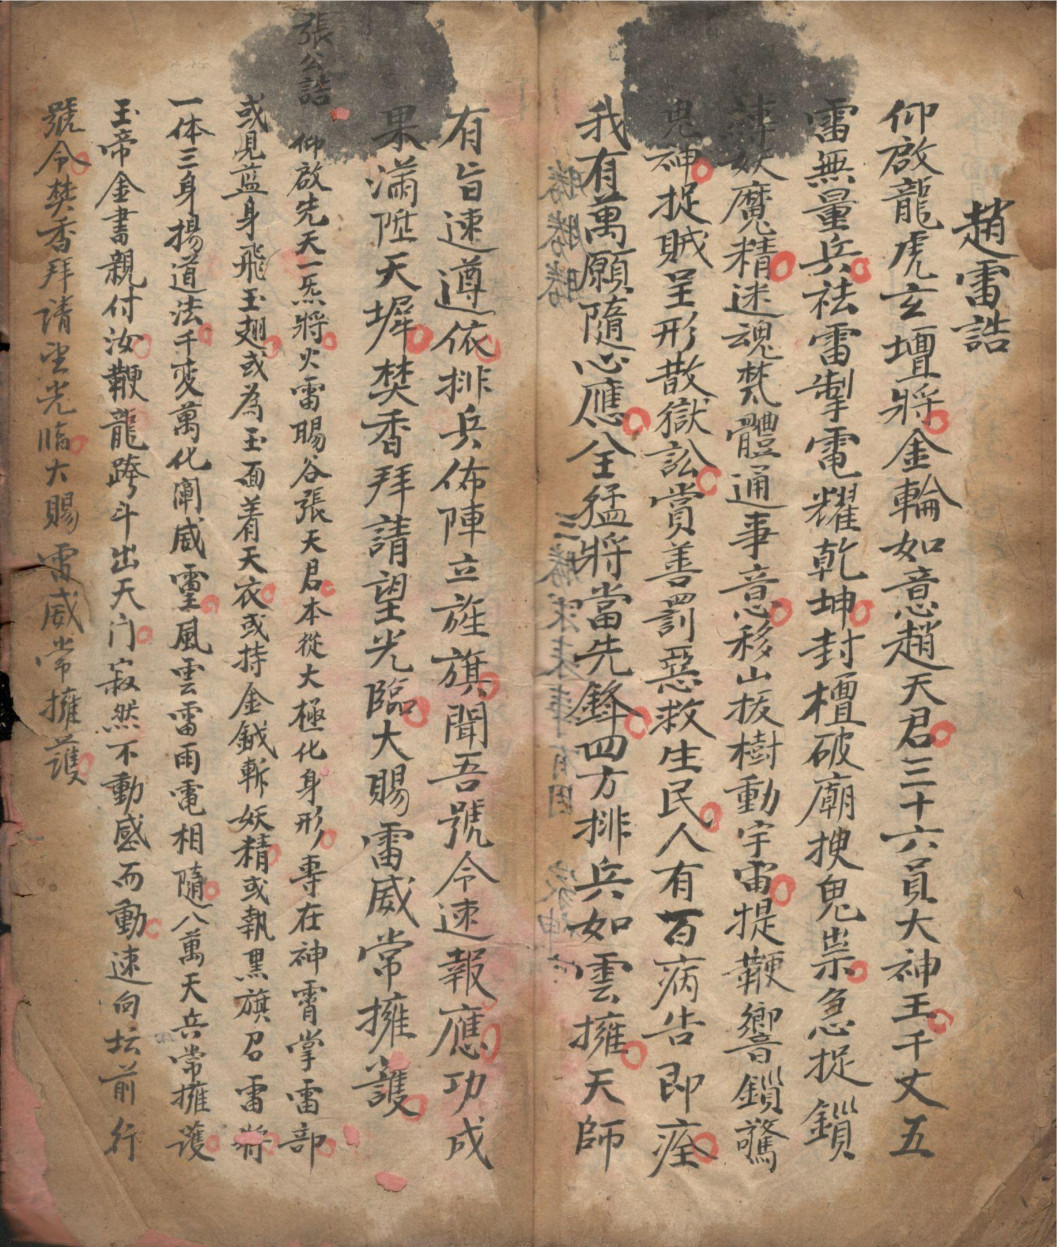 趙雷誥
仰啟龍虎玄壇將金輪如意趙天君三十六員大神王千丈五
雷無量兵祛雷掣電耀乾坤封檀破廟搜鬼祟急捉鎖
妖魔精迷魂梵體通事意移山拔樹動宇宙提鞭響鎖驚
鬼神捉賊呈形散獄訟賞善罰惡救生民人有百病告即痊
我有萬願隨心應全猛將當先鋒四方排兵如雲擁天師
有旨速遵依排兵佈陣立旌旗聞吾號令速報應功成
果滿陞天墀焚香拜請望光臨大賜雷威常擁護
張公誥
仰啟先天一炁將火雷賜谷張天君本從大極化身形專在神霄掌雷部
或見藍身飛玉翅或為玉面着天衣或持金鉞斬妖精或執黑旗召雷將
一体三身揚道法千变萬化闡威靈風雲雷雨電相隨八萬天兵常擁護
玉帝金書親付汝鞭龍跨斗出天门寂然不動感而動速向坛前行
號令焚香拜請望光临大賜雷威常擁護